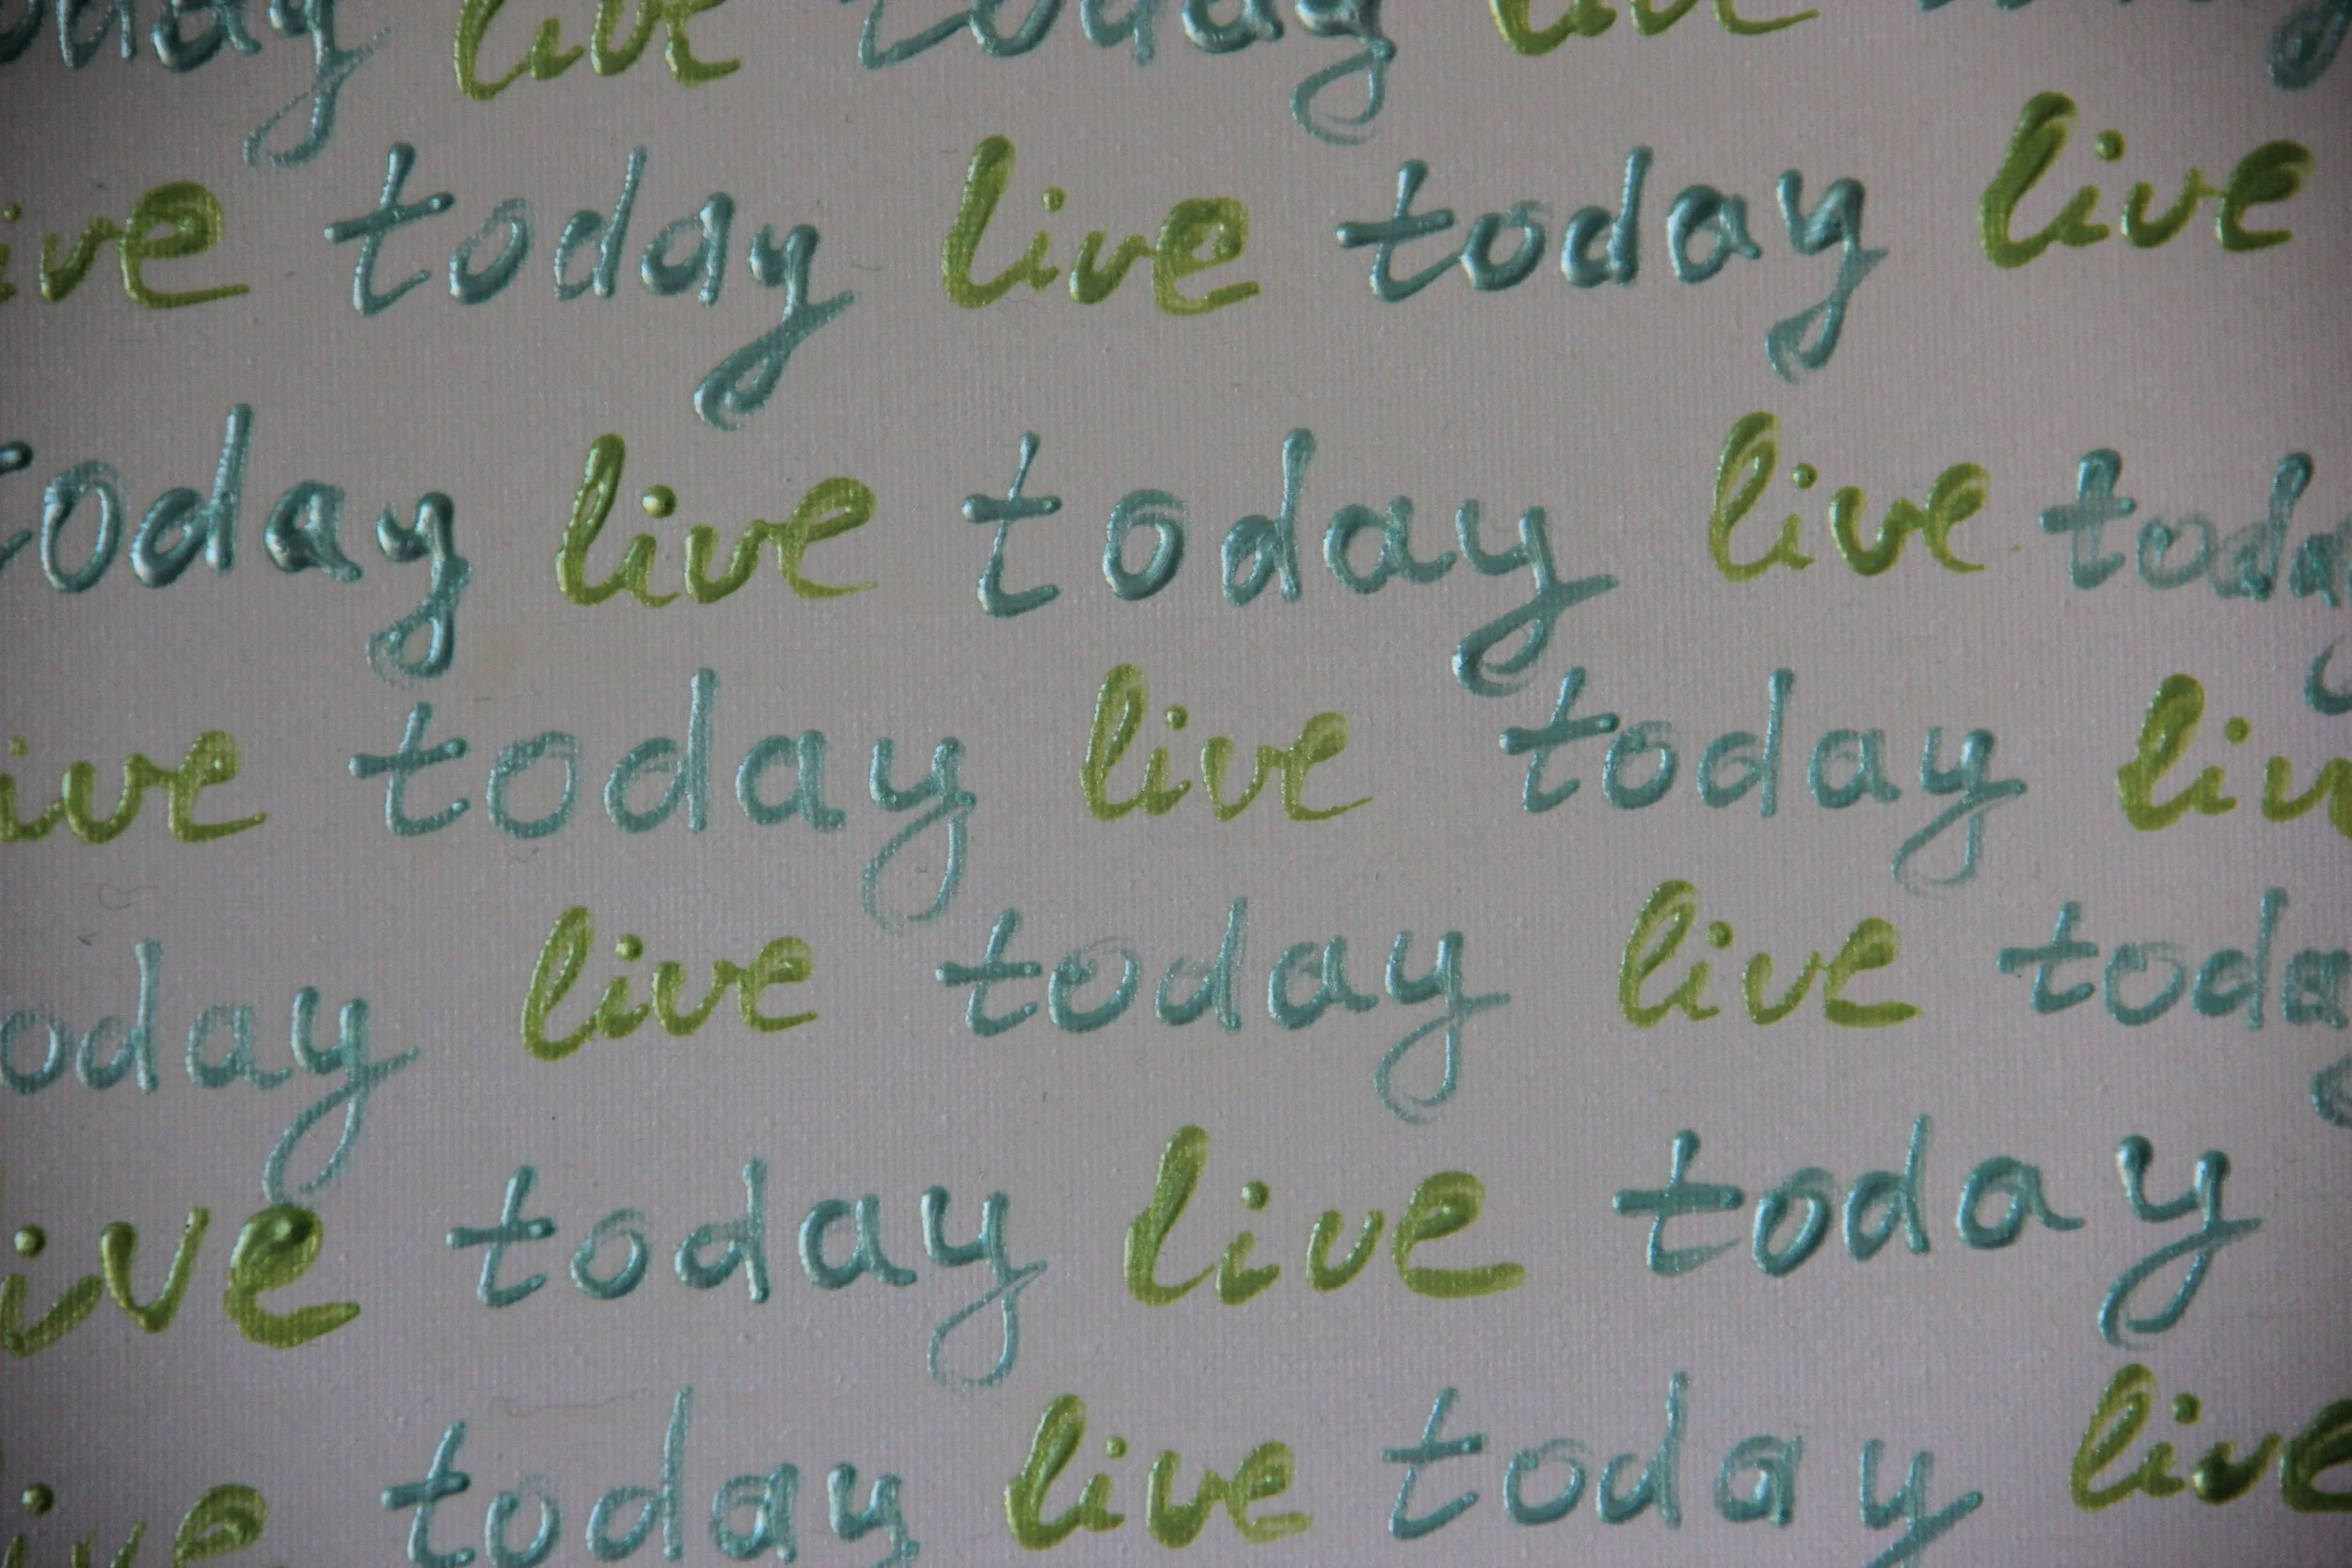 today live today live today
live today live today live
today live today live today
live today live today live
today live today live today
live today live today
live today live today live